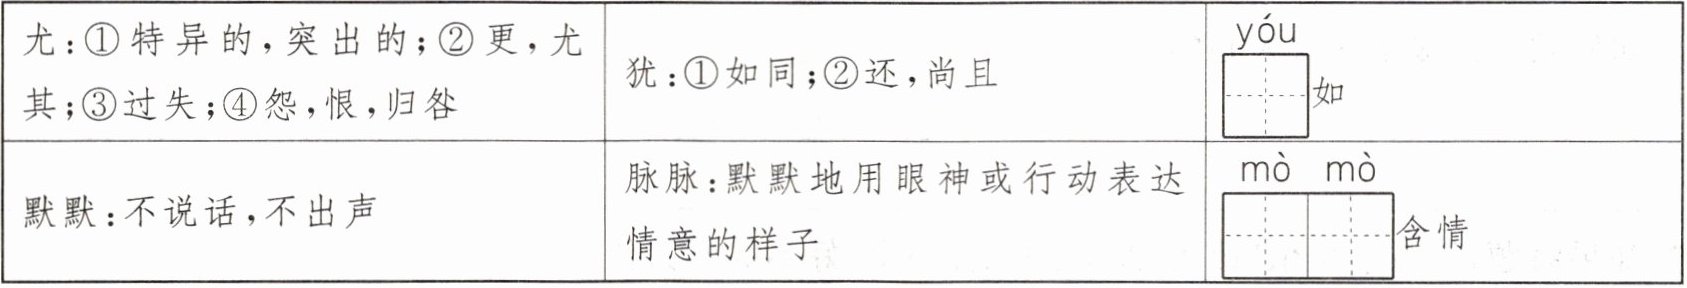 尤:①特异的,突出的;②更,尤
其;③过失;④怨,恨,归咎
犹:①如同;②还,尚且
yóu
如
默默:不说话,不出声
脉脉:默默地用眼神或行动表达
情意的样子
mò mò
含情